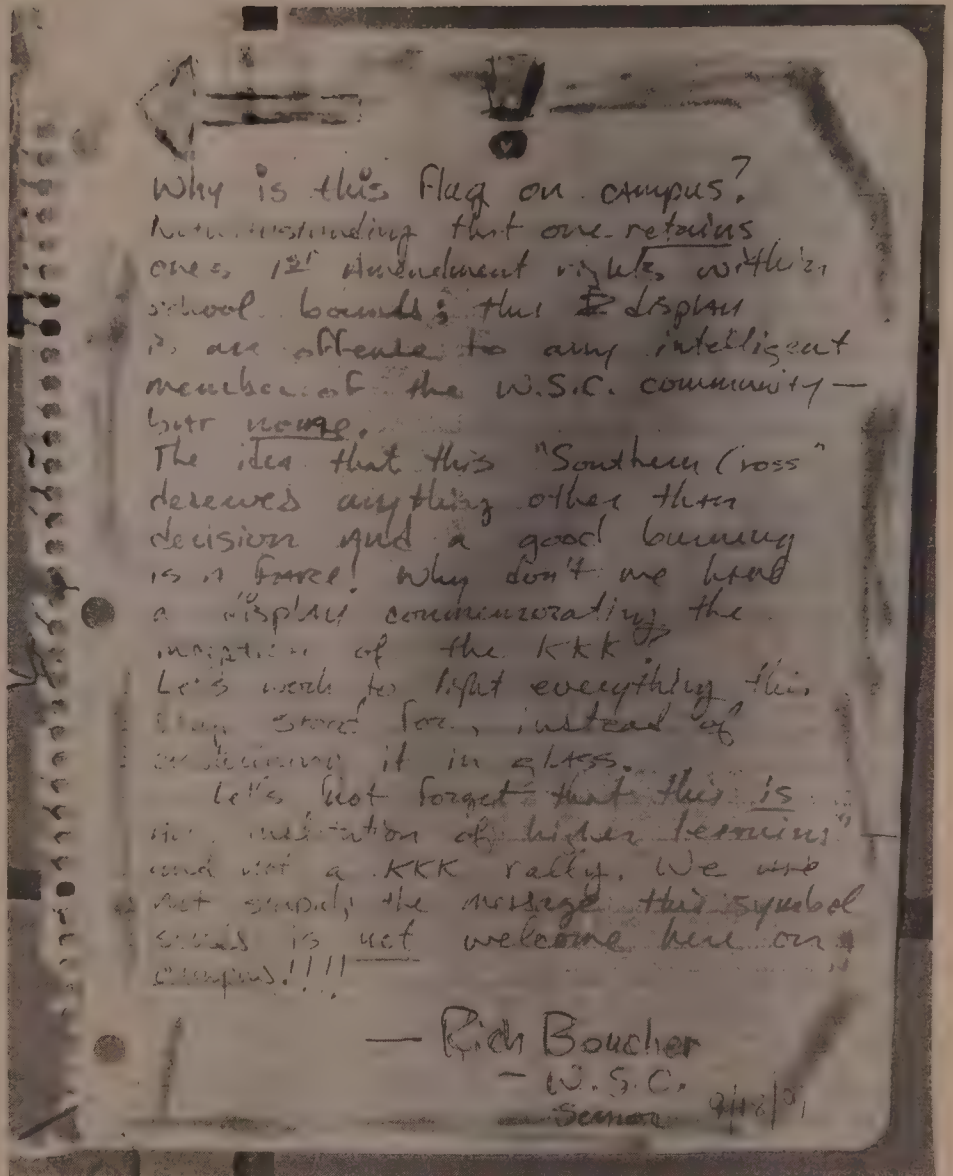 Why is this flag on campus?
that one retains
ones 1st Amendment rights within
school bounds; this display
is an offense to any intelligent
member of the W.S.C. community—
but none.
The idea that this "Southern Cross"
deserves anything other than
decision and a good burning
is a farce! Why don't we have
a display commemorating the
inception of the KKK?
Let's work to fight everything this
flag stood for, instead of
enshrining it in glass.
Let's not forget that this is
an institution of higher learning"
and not a KKK rally. We are
not stupid; the message this symbol
sends is not welcome here on
campus!!!!
— Rich Boucher
- W.S.C.
Senior